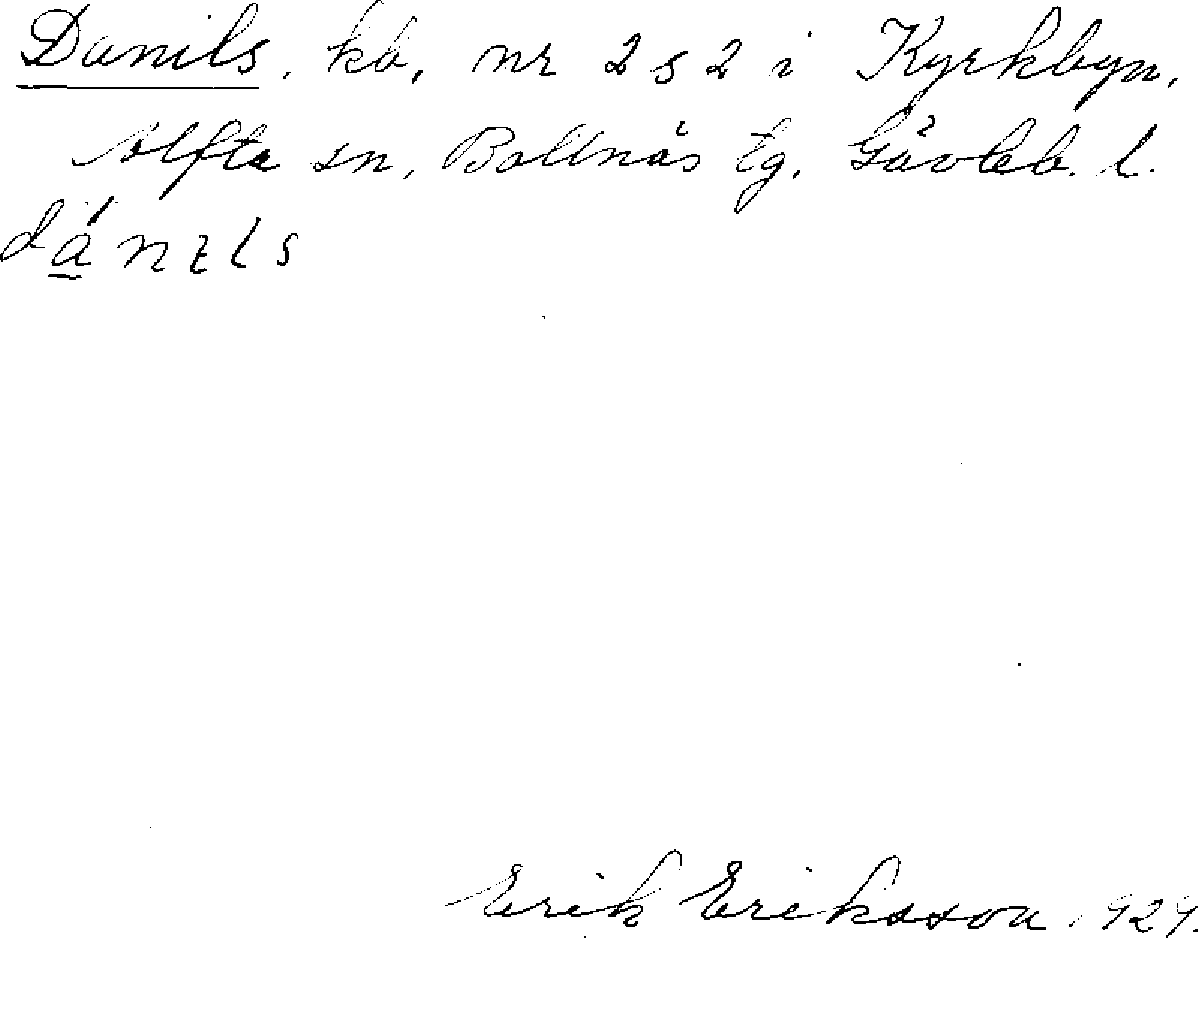 Danils, kb, nr 2 s 2 i Kyrkbyn,
Alfta sn, Bollnäs tg. Gävleb. l.
dánzls
Erik Eriksson, 1929.